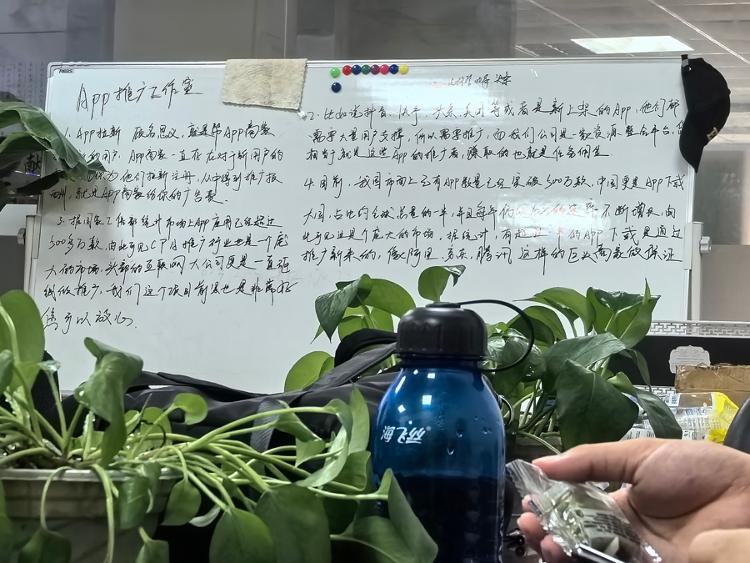 App推广工作室
1. App拉新 顾名思义,就是帮App商家
的用户,App商家一直存在对于新用户的
为他们拉新注册,从中得到推广报
酬,就是App商家给你的广告费.
2. 比如说抖音、快手、京东、美团等或者是新上架的App,他们都
需要大量用户支撑,所以需要推广,而我们公司是一家资源整合平台,
相当于就是这些App的推广商,赚取的也就是任务佣金
3. 据国家工信部统计市场上App应用已经超过
300多万款,由此可见CPA推广行业也是一个庞
大的市场,头部的互联网大公司更是一直在
做推广,我们这个项目前景也是非常
您可以放心.
4. 目前,我国市面上已有App数量已经突破300万款,中国更是App下载
大国,占比约全球总量的一半,并且每年 不断增长,由
此可见这是个庞大的市场,据统计,有超过 的App下载是通过
推广新来的,像阿里、京东、腾讯 这样的巨头商家做保证